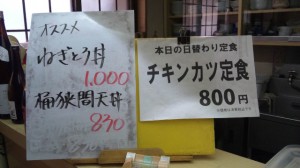 オススメ
ねぎとろ丼
1,000
桶狭間天丼
830
本日の日替わり定食
チキンカツ定食
800円